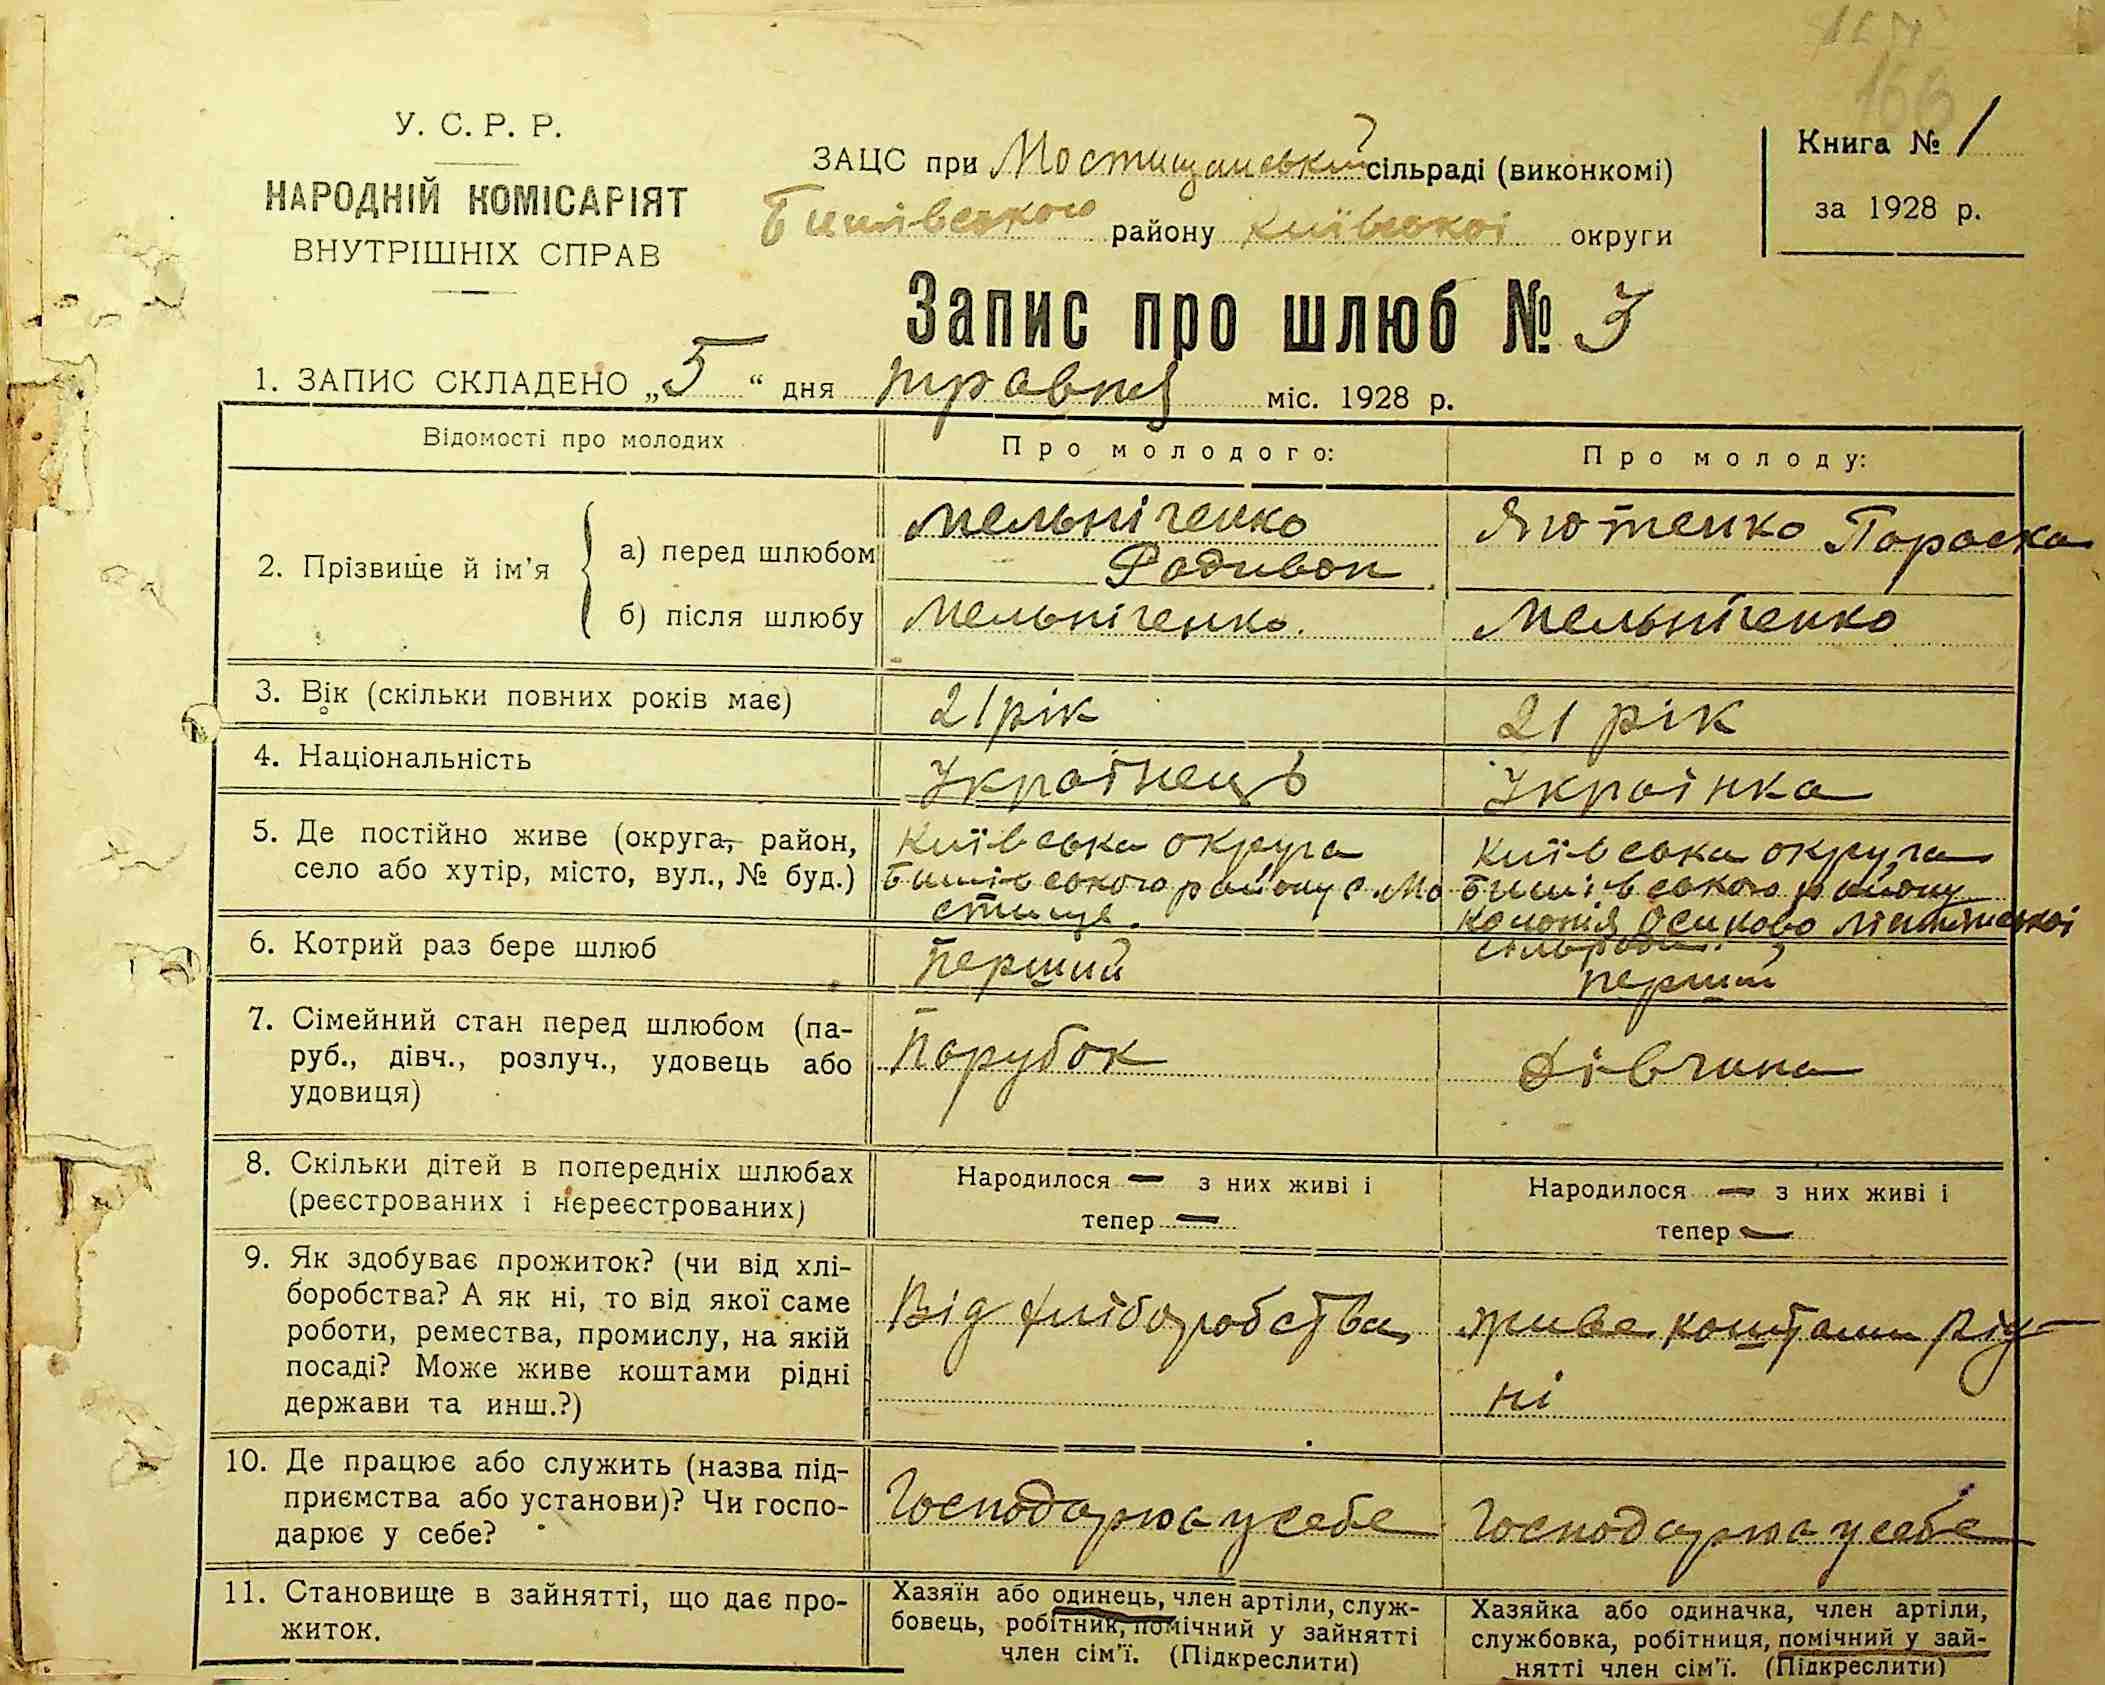 166
У. С. Р. Р.
НАРОДНІЙ КОМІСАРІЯТ
ВНУТРІШНІХ СПРАВ
ЗАЦС при Мостищанській сільраді (виконкомі)
Бишівського району Київської округи
Книга № 1
за 1928 р.
Запис про шлюб № 3
1. ЗАПИС СКЛАДЕНО „5“ дня травня міс. 1928 р.
Відомості про молодих
Про молодого:
Про молоду:
2. Прізвище й ім'я
а) перед шлюбом
Мельніченко
Родивон
Параска
б) після шлюбу
Мельніченко.
Мельніченко
3. Вік (скільки повних років має)
21 рік
21 рік
4. Національність
Українець
Українка
5. Де постійно живе (округа, район,
село або хутір, місто, вул., № буд.)
Київська округа
Бишівського району с. Мо
стище.
Київська округа
Бишівського району
Колонія Осиково
сільради.
6. Котрий раз бере шлюб
Перший
перший
7. Сімейний стан перед шлюбом (па-
руб., дівч., розлуч., удовець або
удовиця)
Парубок
Дівчина
8. Скільки дітей в попередніх шлюбах
(реєстрованих і нереєстрованих)
Народилося — з них живі і
тепер —
Народилося — з них живі і
тепер —
9. Як здобуває прожиток? (чи від хлі-
боробства? А як ні, то від якої саме
роботи, ремества, промислу, на якій
посаді? Може живе коштами рідні
держави та инш.?)
Від хліборобства
живе коштами рід-
ні
10. Де працює або служить (назва під-
приємства або установи)? Чи госпо-
дарює у себе?
Господарює у себе
Господарює у себе
11. Становище в зайнятті, що дає про-
житок.
Хазяїн або одинець, член артіли, служ-
бовець, робітник, помічний у зайнятті
член сім'ї. (Підкреслити)
Хазяйка або одиначка, член артіли,
службовка, робітниця, помічний у зай-
нятті член сім'ї. (Підкреслити)